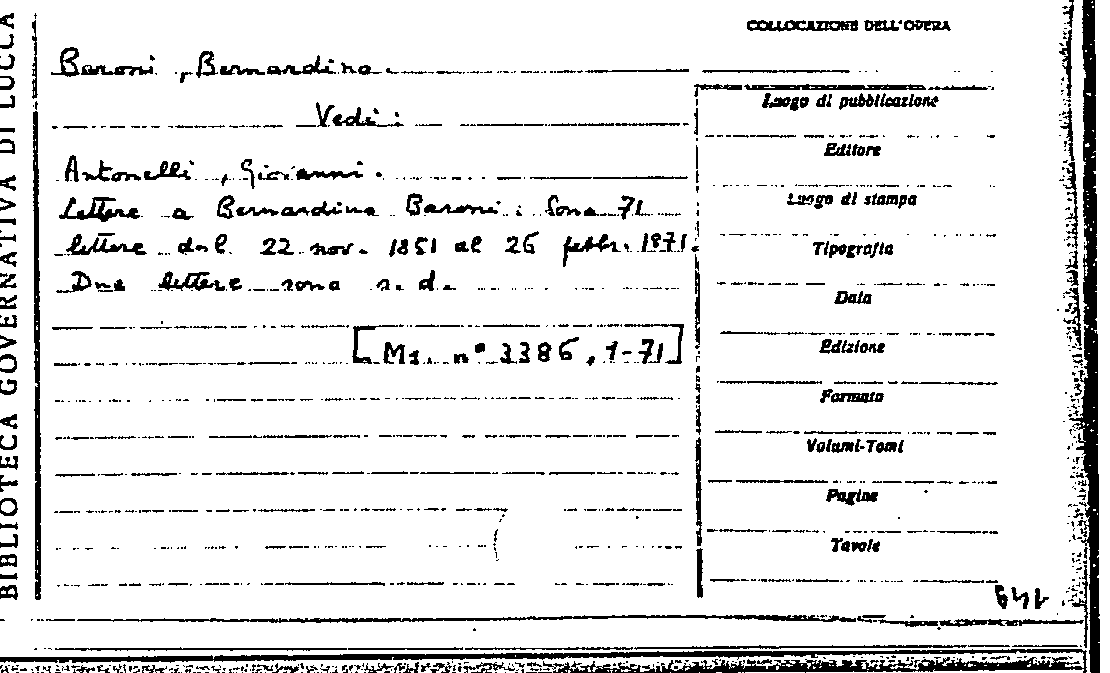 BIBLIOTECA GOVERNATIVA DI LUCCA
COLLOCAZIONE DELL'OPERA
Baroni, Bernardino.
Vedi:
Antonelli, Giovanni.
Lettere a Bernardino Baroni: Sono 71
lettere dal 22 nov. 1851 al 26 febbr. 1871.
Due lettere sono s. d.
[Ms. n° 3386, 1-71]
Luogo di pubblicazione
Editore
Luogo di stampa
Tipografia
Data
Edizione
Formato
Volumi-Tomi
Pagine
Tavole